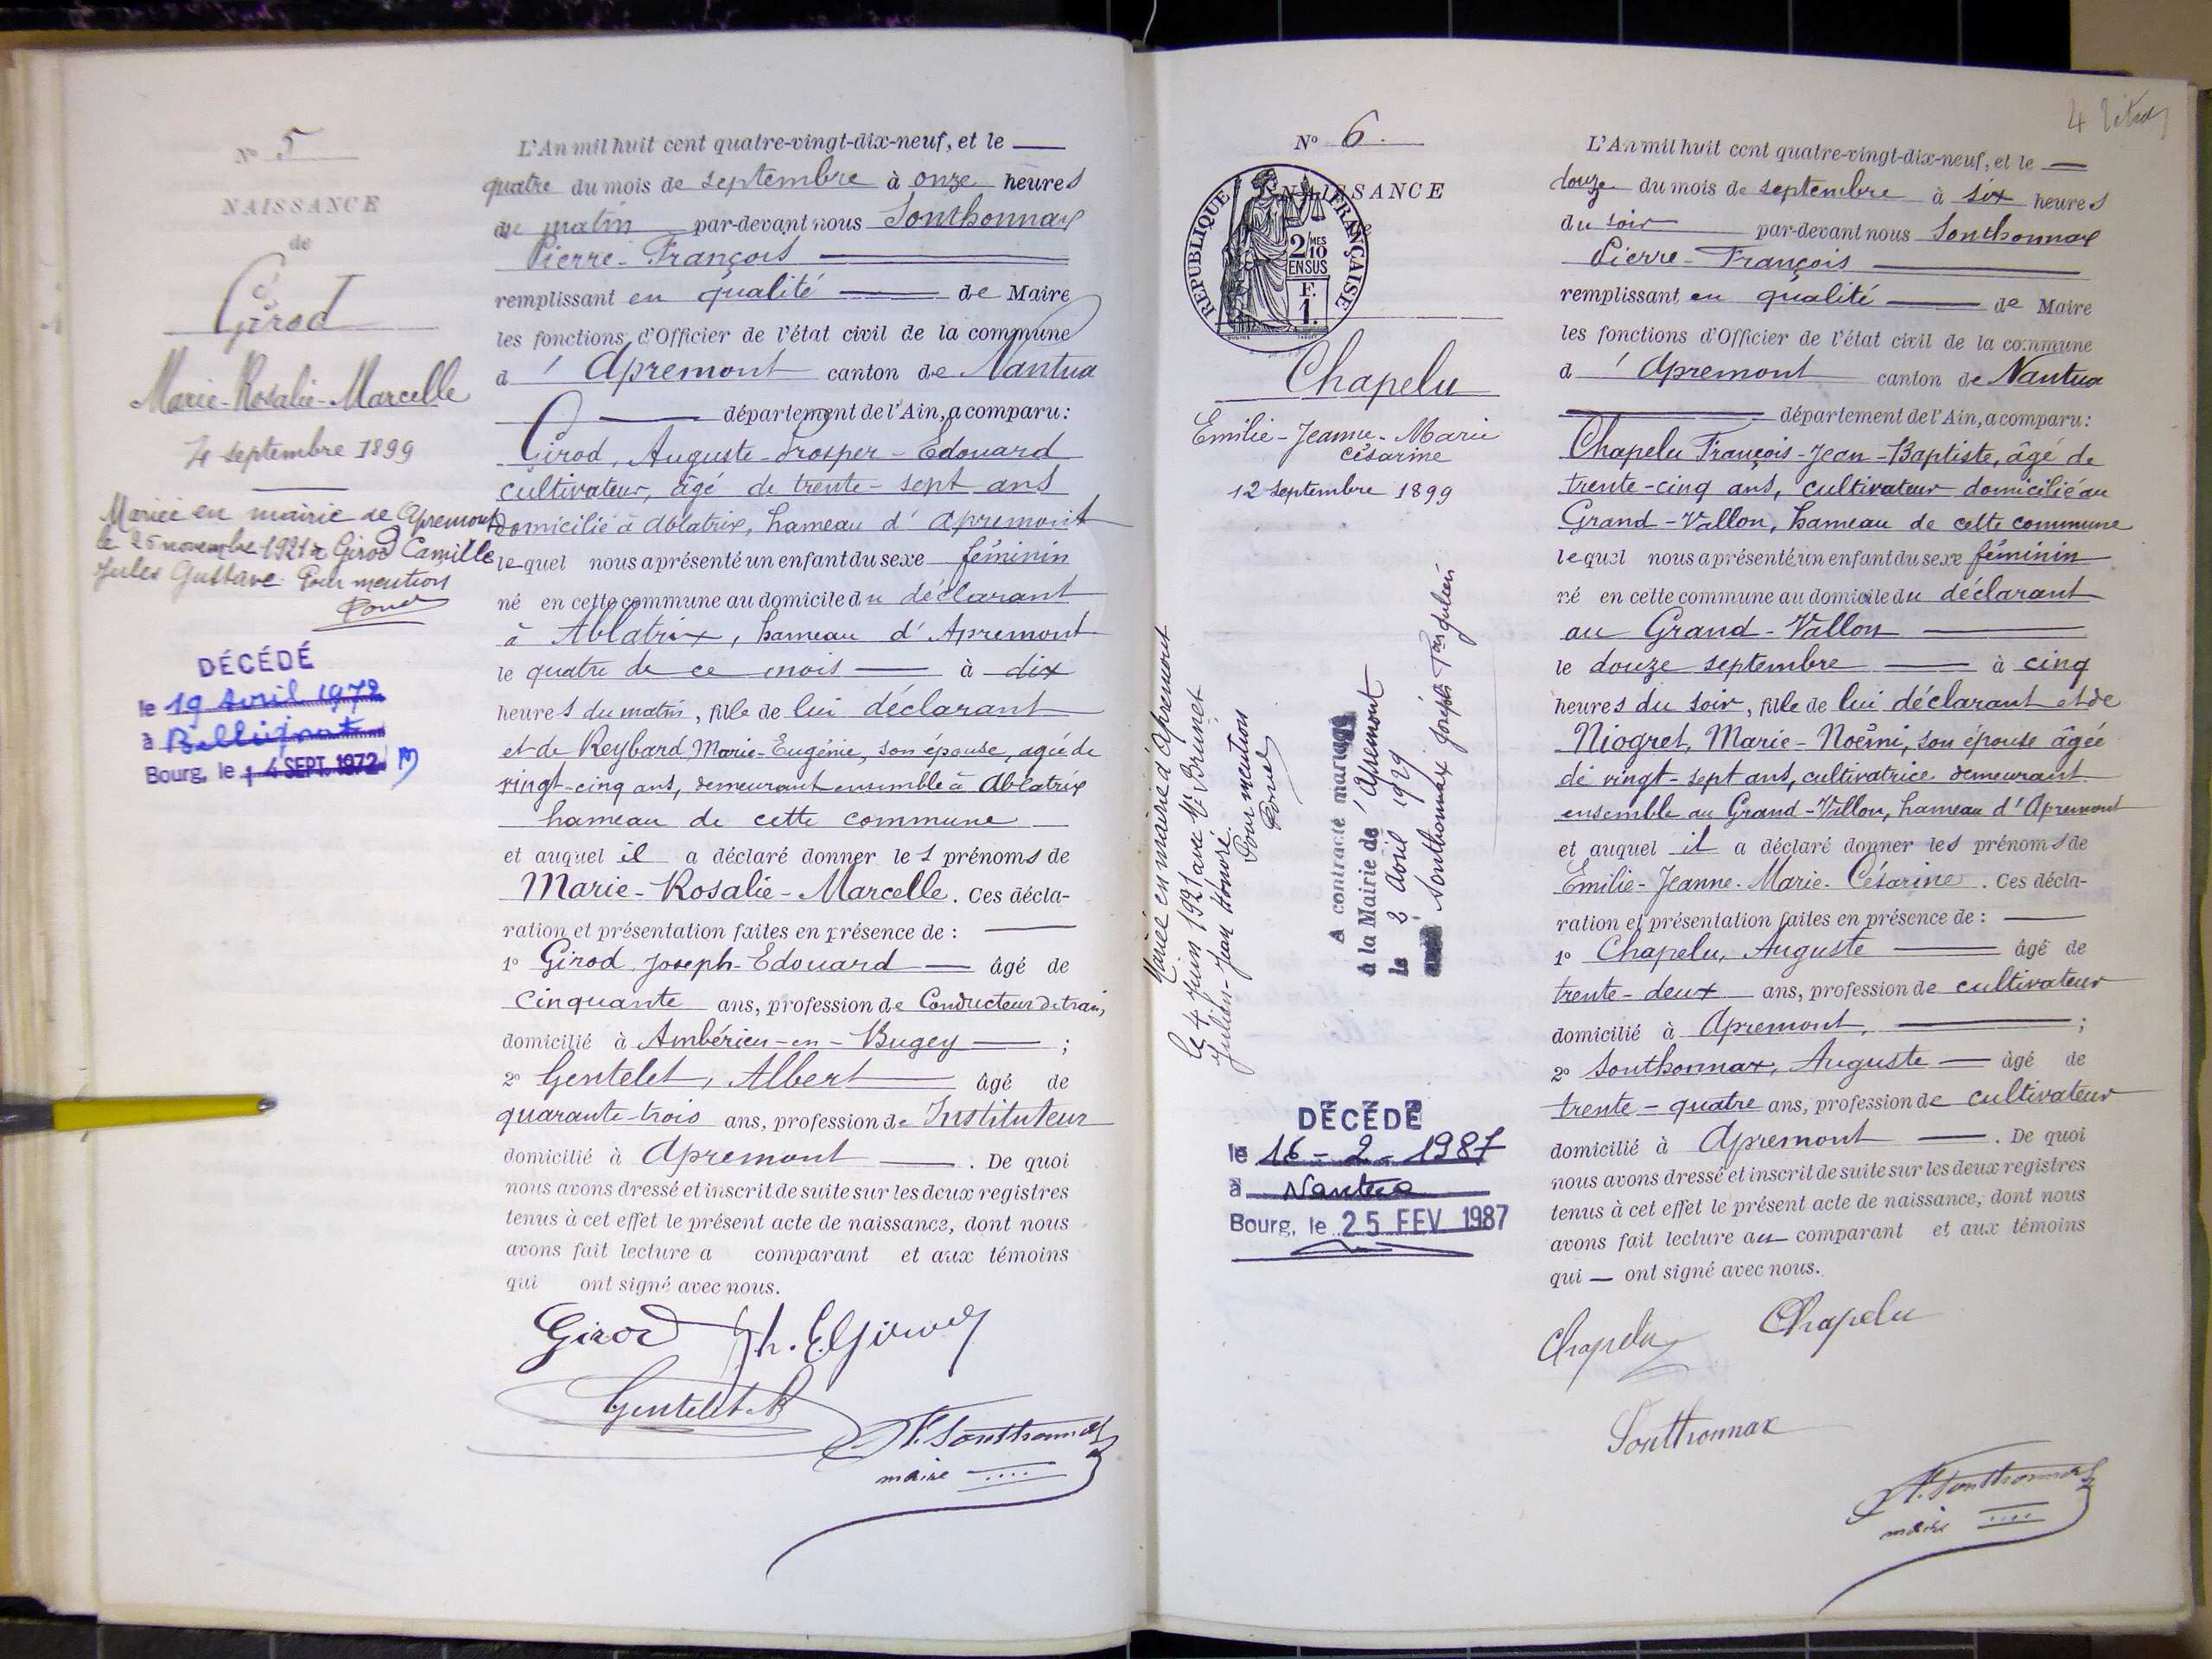 N° 5
NAISSANCE
de
Girod
Marie-Rosalie-Marcelle
4 septembre 1899
Mariée en mairie de Apremont
le 26 novembre 1921 à Girod Camille
Jules Gustave. Pour mention
DÉCÉDÉ
le 19 Avril 1972
à Bellignat
Bourg, le 14 SEPT. 1972
L'An mil huit cent quatre-vingt-dix-neuf, et le
quatre du mois de septembre à onze heures
du matin par-devant nous Sonthonnax
Pierre-François
remplissant en qualité de Maire
les fonctions d'Officier de l'état civil de la commune
d'Apremont canton de Nantua
département de l'Ain, a comparu:
Girod, Auguste-Prosper-Edouard
cultivateur, âgé de trente-sept ans
domicilié à Ablatrix, hameau d'Apremont
lequel nous a présenté un enfant du sexe féminin
né en cette commune au domicile du déclarant
à Ablatrix, hameau d'Apremont
le quatre de ce mois à dix
heures du matin, fille de lui déclarant
et de Reybard Marie-Eugénie, son épouse, agée de
vingt-cinq ans, demeurant ensemble à Ablatrix
hameau de cette commune
et auquel il a déclaré donner les prénoms de
Marie-Rosalie-Marcelle. Ces décla-
ration et présentation faites en présence de :
1° Girod Joseph-Edouard âgé de
cinquante ans, profession de Conducteur de train,
domicilié à Ambérieu-en-Bugey ;
2° Gentelet, Albert âgé de
quarante-trois ans, profession de Instituteur
domicilié à Apremont . De quoi
nous avons dressé et inscrit de suite sur les deux registres
tenus à cet effet le présent acte de naissance, dont nous
avons fait lecture a comparant et aux témoins
qui ont signé avec nous.
Girod Jh. E Girod
Gentelet A
P. Sonthonnax
maire
4
N° 6.
NAISSANCE
REPUBLIQUE FRANÇAISE
2/10 MES
EN SUS
F.
1.
Chapelu
Emilie-Jeanne-Marie
Césarine
12 septembre 1899
Mariée en mairie d'Apremont
le 4 Juin 1921 avec Mr Brunet
Julien-Jean Honoré.
Pour mention
A contracté mariage
à la Mairie de l'Apremont
le 8 Avril 1929
Sonthonnax Joseph Fois Julien
DÉCÉDÉ
le 16-2-1987
à Nantua
Bourg, le 25 FEV 1987
L'An mil huit cent quatre-vingt-dix-neuf, et le
douze du mois de septembre à six heures
du soir par-devant nous Sonthonnax
Pierre-François
remplissant en qualité de Maire
les fonctions d'Officier de l'état civil de la commune
d'Apremont canton de Nantua
département de l'Ain, a comparu:
Chapelu François-Jean-Baptiste, âgé de
trente-cinq ans, cultivateur domicilié au
Grand-Vallon, hameau de cette commune
lequel nous a présenté un enfant du sexe féminin
né en cette commune au domicile du déclarant
au Grand-Vallon
le douze septembre à cinq
heures du soir, fille de lui déclarant et de
Niogret, Marie-Noémi, son épouse âgée
de vingt-sept ans, cultivatrice demeurant
ensemble au Grand-Vallon, hameau d'Apremont
et auquel il a déclaré donner les prénoms de
Emilie-Jeanne-Marie-Césarine. Ces décla-
ration et présentation faites en présence de :
1° Chapelu, Auguste âgé de
trente-deux ans, profession de cultivateur
domicilié à Apremont, ;
2° Sonthonnax, Auguste âgé de
trente-quatre ans, profession de cultivateur
domicilié à Apremont . De quoi
nous avons dressé et inscrit de suite sur les deux registres
tenus à cet effet le présent acte de naissance, dont nous
avons fait lecture au comparant et aux témoins
qui ont signé avec nous.
Chapelu Chapelu
Sonthonnax
P. Sonthonnax
maire